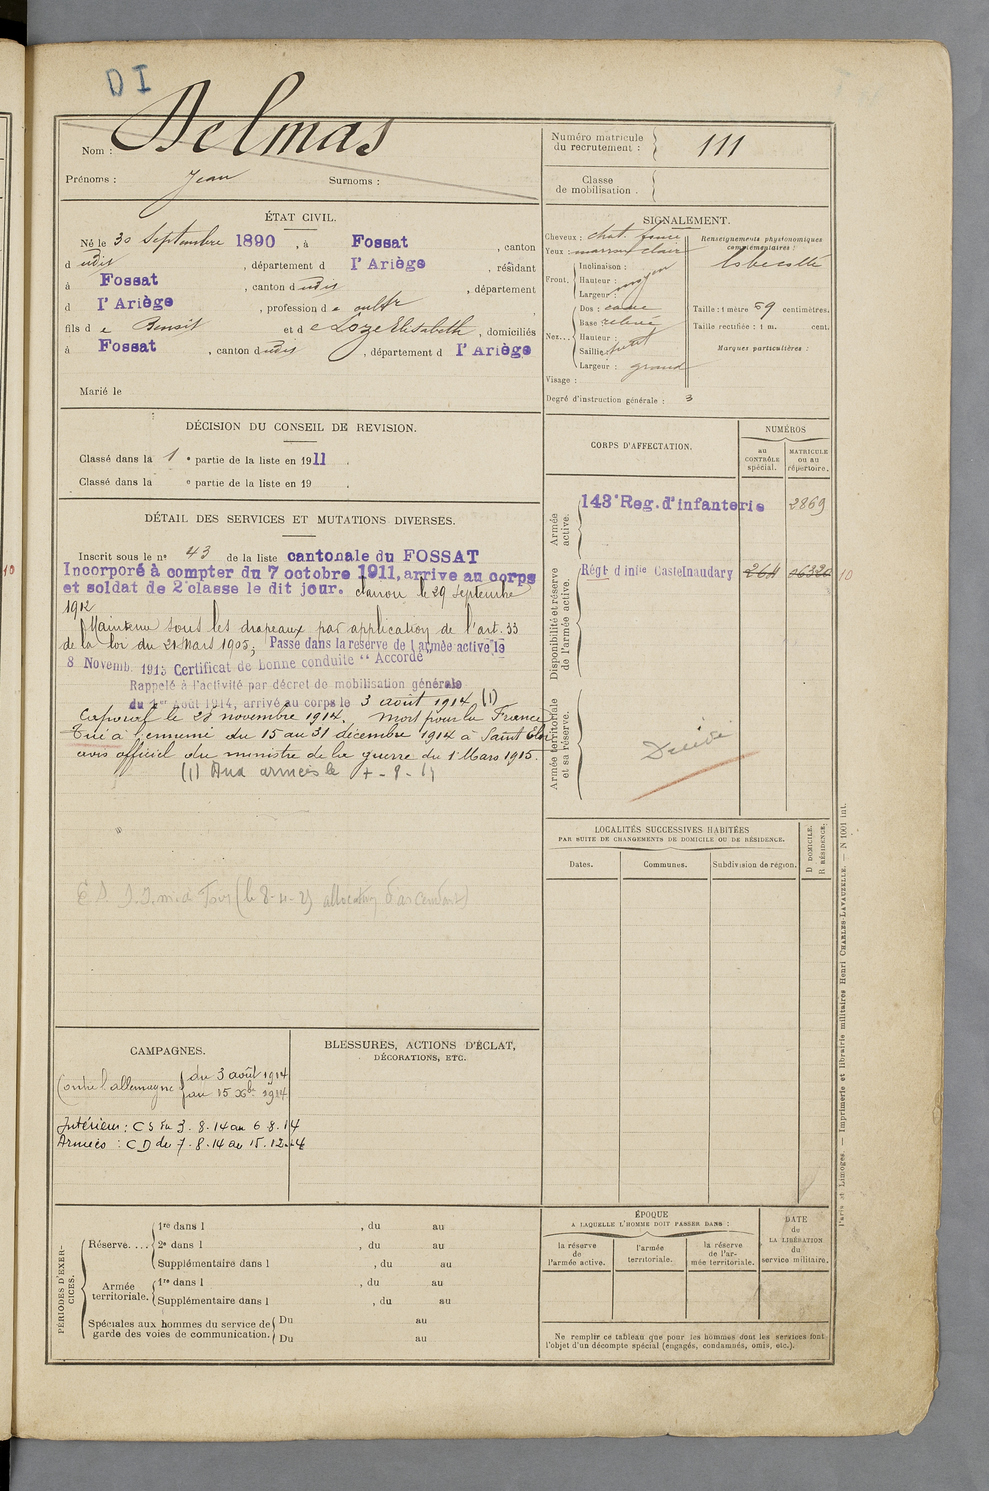 DI
Nom : Delmas
Prénoms : Jean Surnoms :
Numéro matricule du recrutement : 111
Classe de mobilisation .
ÉTAT CIVIL.
Né le 30 Septembre 1890, à Fossat, canton
d udit, département d l'Ariège, résidant
à Fossat, canton d udit, département
d l'Ariège, profession d e cultr
fils d e Benoit et d e Loze Elisabeth, domiciliés
à Fossat, canton dudit, département d l'Ariège
Marié le
SIGNALEMENT.
Cheveux : chat. foncé
Yeux : marron clair
Front.
Inclinaison :
Hauteur : moyen
Largeur :
Nez...
Dos : cave
Base relevé
Hauteur :
Saillie :
Largeur : grand
Visage :
Degré d'instruction générale : 3
Renseignements physionomiques complémentaires :
Taille : 1 mètre 59 centimètres.
Taille rectifiée : 1 m. cent.
Marques particulières :
DÉCISION DU CONSEIL DE REVISION.
Classé dans la 1 e partie de la liste en 1911 .
Classé dans la e partie de la liste en 19 .
DÉTAIL DES SERVICES ET MUTATIONS DIVERSES.
Inscrit sous le n° 43 de la liste cantonale du FOSSAT
Incorporé à compter du 7 octobre 1911, arrive au corps
et soldat de 2e classe le dit jour. clairon le 29 Septembre
1912
Maintenu sous les drapeaux par application de l'art. 33
de la loi du 21 Mars 1905, Passe dans la reserve de l'armée active le
8 Novemb. 1913 Certificat de bonne conduite "Accordé"
Rappelé à l'activité par décret de mobilisation générale
du 1er Août 1914, arrivé au corps le 3 août 1914 (1)
Caporal le 28 novembre 1914. Mort pour la France
Tué à l'ennemi du 15 au 31 décembre 1914 à Saint Eloi
avis officiel du ministre de la guerre du 1 Mars 1915.
(1) Aux armées le 7-8-14
allocation d'ascendant)
CORPS D'AFFECTATION.
NUMÉROS
au CONTRÔLE spécial.
MATRICULE ou au répertoire.
Armée active.
143e Reg. d'infanterie 2869
Disponibilité et réserve de l'armée active.
Régt d'infie Castelnaudary 2611 06320 10
Armée territoriale et sa réserve.
LOCALITÉS SUCCESSIVES HABITÉES
PAR SUITE DE CHANGEMENTS DE DOMICILE OU DE RÉSIDENCE.
Dates.
Communes.
Subdivision de région.
D DOMICILE.
R RÉSIDENCE.
CAMPAGNES.
Contre l'allemagne du 3 août 1914
au 15 Xbre 1914
Intérieur : CS du 3.8.14 au 6.8.14
Armées : CD du 7.8.14 au 15.12.14
BLESSURES, ACTIONS D'ÉCLAT,
DÉCORATIONS, ETC.
PÉRIODES D'EXERCICES.
Réserve....
1re dans l , du au
2e dans l , du au
Supplémentaire dans l , du au
Armée territoriale.
1re dans l , du au
Supplémentaire dans l , du au
Spéciales aux hommes du service de garde des voies de communication.
Du au
Du au
ÉPOQUE
A LAQUELLE L'HOMME DOIT PASSER DANS :
la réserve de l'armée active.
l'armée territoriale.
la réserve de l'armée territoriale.
DATE de LA LIBÉRATION du service militaire.
Ne remplir ce tableau que pour les hommes dont les services font
l'objet d'un décompte spécial (engagés, condamnés, omis, etc.).
Paris et Limoges. — Imprimerie et librairie militaires Henri CHARLES-LAVAUZELLE. — N 1001 int.